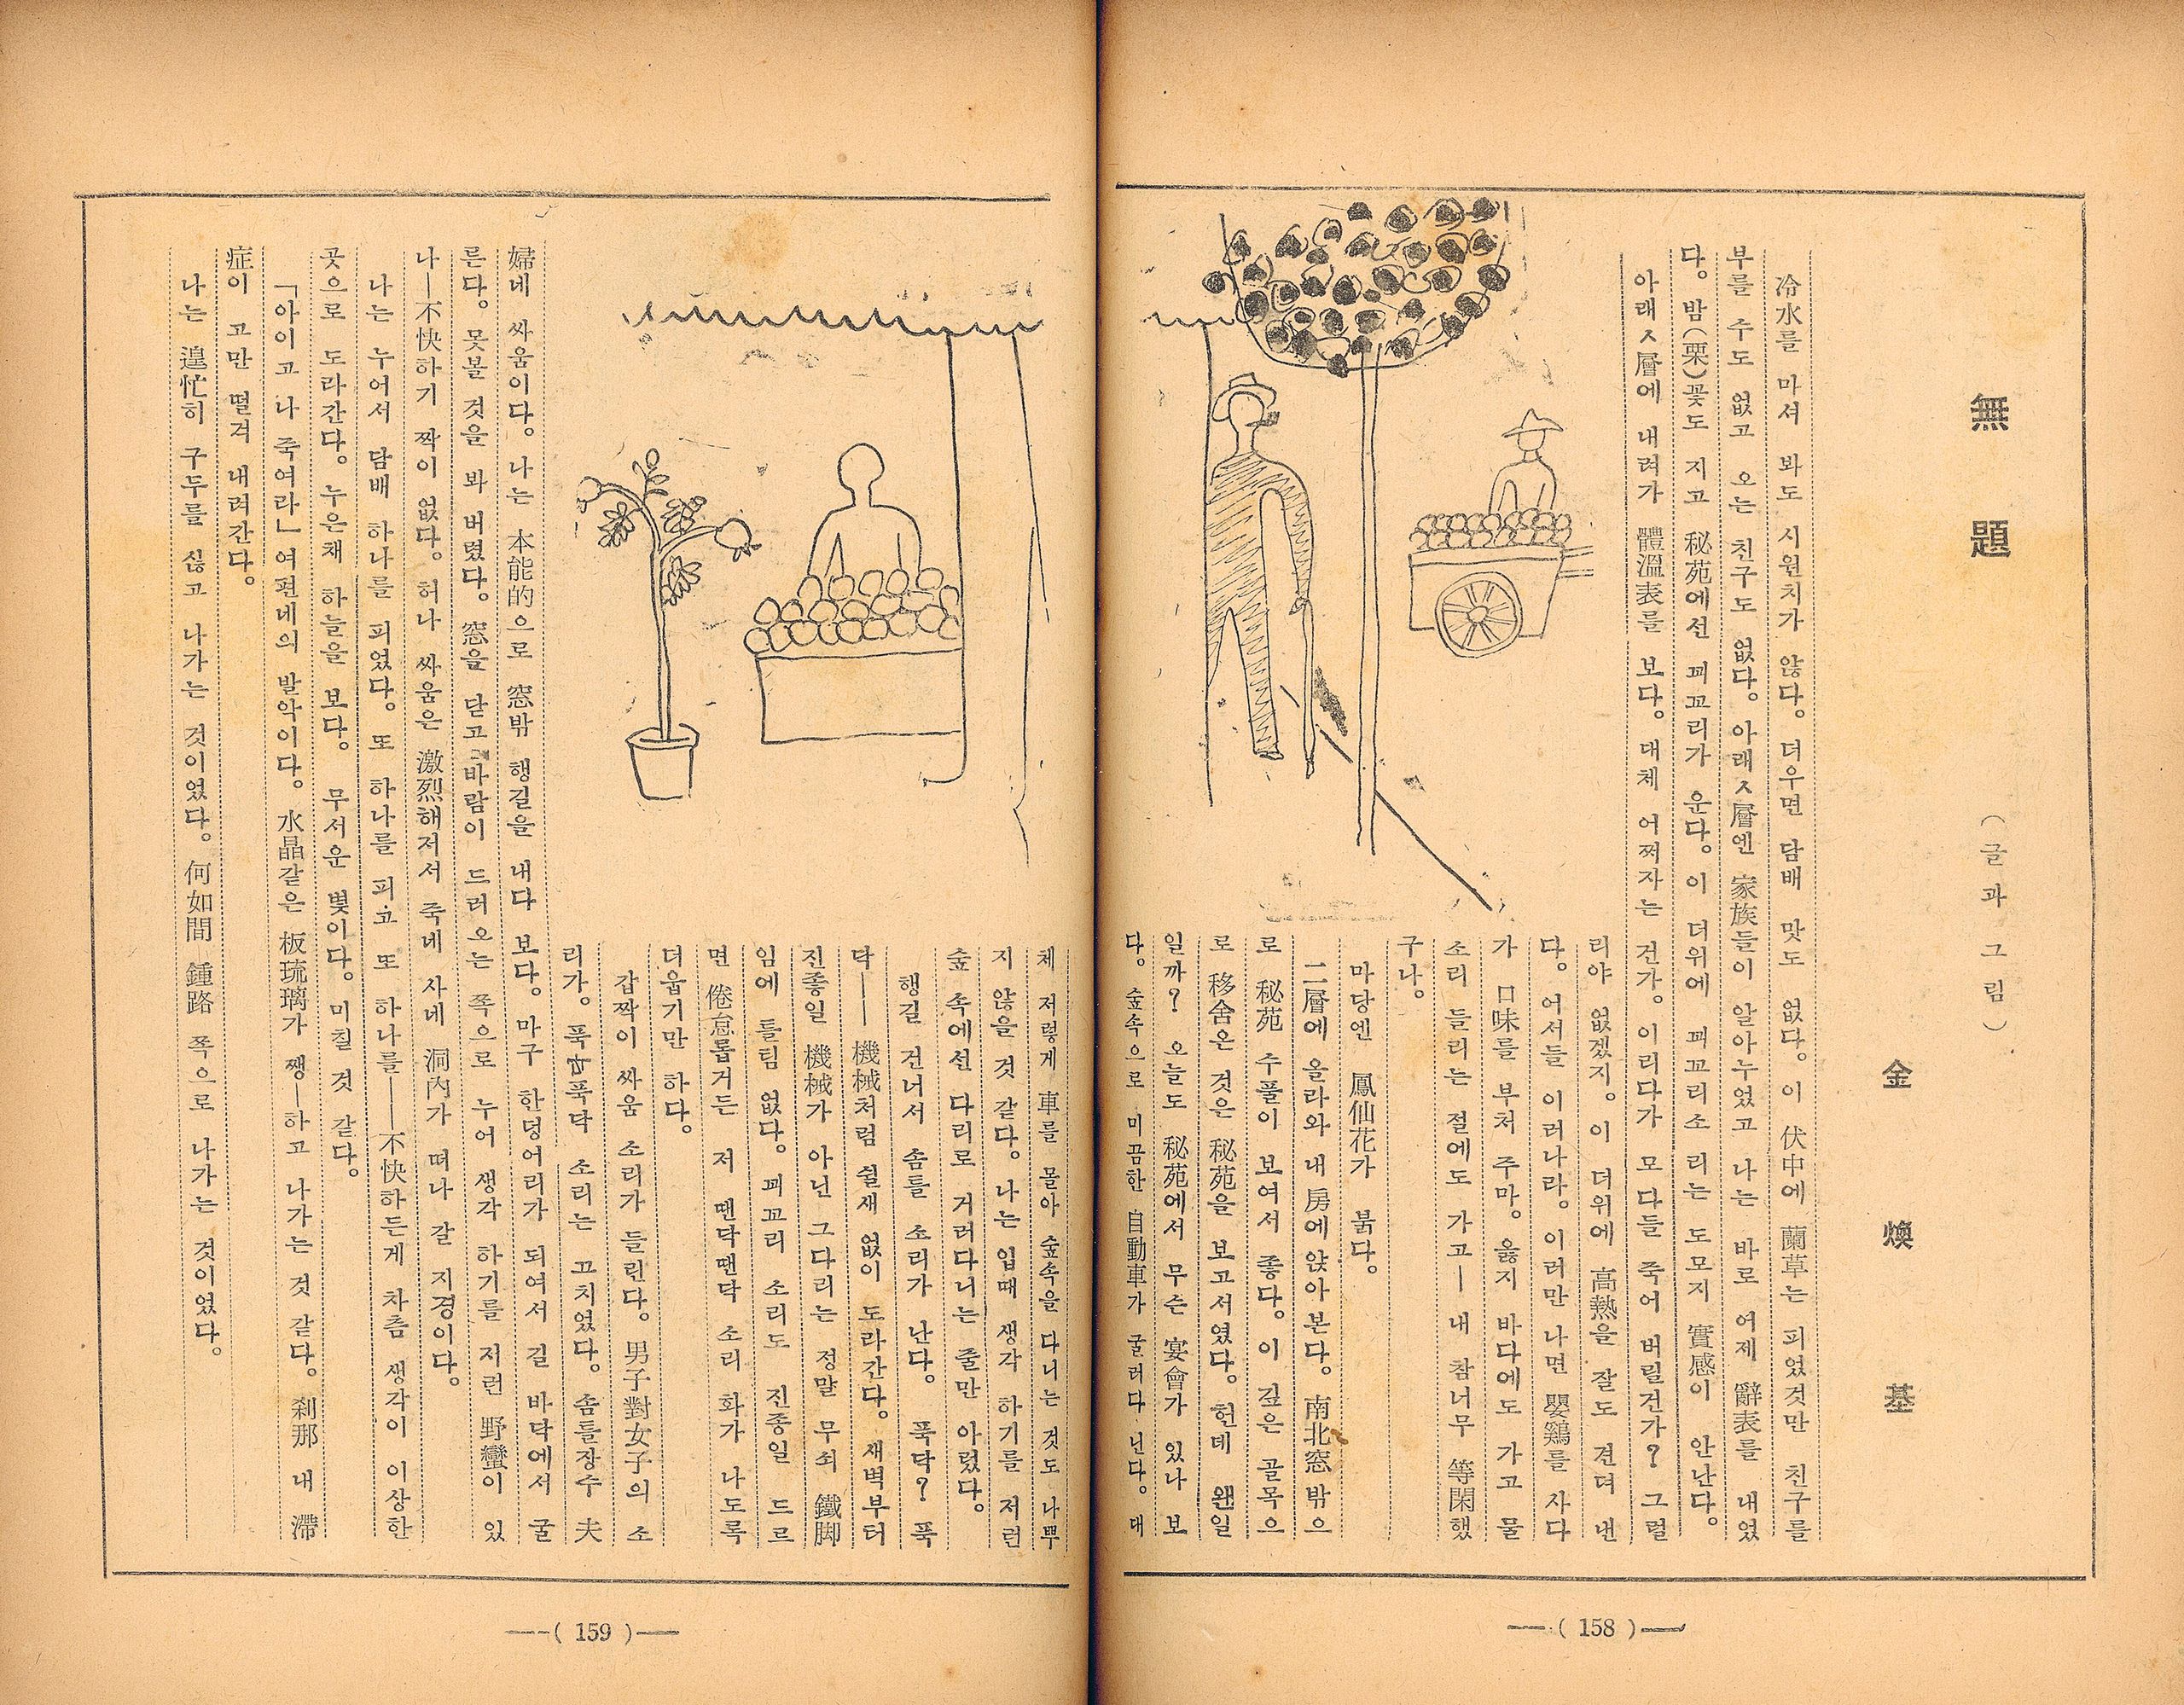 無題
(글과 그림)
金煥基
冷水를 마셔 봐도 시원치가 않다. 더우면 담배 맛도 없다. 이 伏中에 蘭草는 피었것만 친구를
부를 수도 없고 오는 친구도 없다. 아래ㅅ層엔 家族들이 알아누었고 나는 바로 어제 辭表를 내었
다. 밤(栗)꽃도 지고 秘苑에선 꾀꼬리가 운다. 이 더위에 꾀꼬리소리는 도모지 實感이 안난다.
아래ㅅ層에 내려가 體溫表를 보다. 대체 어쩌자는 건가. 이리다가 모다들 죽어 버릴건가? 그럴
리야 없겠지. 이 더위에 高熱을 잘도 견뎌 낸
다. 어서들 이러나라. 이러만 나면 嬰鷄를 사다
가 口味를 부처 주마. 옳지 바다에도 가고 물
소리 들리는 절에도 가고— 내 참너무 等閑했
구나.
마당엔 鳳仙花가 붉다.
二層에 올라와 내 房에 앉아본다. 南北窓 밖으
로 秘苑 수풀이 보여서 좋다. 이 깊은 골목으
로 移舍온 것은 秘苑을 보고서였다. 헌데 왠일
일까? 오늘도 秘苑에서 무슨 宴會가 있나 보
다. 숲속으로 미끔한 自動車가 굴러다 닌다. 대
— ( 158 ) —
체 저렇게 車를 몰아 숲속을 다니는 것도 나쁘
지 않을 것 같다. 나는 입때 생각 하기를 저런
숲 속에선 다리로 거러다니는 줄만 아렀다.
행길 건너서 솜틀 소리가 난다. 푹닥? 푹
닥—— 機械처럼 쉴새 없이 도라간다. 새벽부터
진종일 機械가 아닌 그다리는 정말 무쇠 鐵脚
임에 틀림 없다. 꾀꼬리 소리도 진종일 드르
면 倦怠롭거든 저 땐닥땐닥 소리 화가 나도록
더웁기만 하다.
갑짝이 싸움 소리가 들린다. 男子對女子의 소
리가. 푹닥푹닥 소리는 끄치었다. 솜틀장수 夫
婦네 싸움이다. 나는 本能的으로 窓밖 행길을 내다 보다. 마구 한덩어리가 되여서 길 바닥에서 굴
른다. 못볼 것을 봐 버렸다. 窓을 닫고 바람이 드러오는 쪽으로 누어 생각 하기를 저런 野蠻이 있
나—不快하기 짝이 없다. 허나 싸움은 激烈해저서 죽네 사네 洞內가 떠나 갈 지경이다.
나는 누어서 담배 하나를 피었다. 또 하나를 피고 또 하나를——不快하든게 차츰 생각이 이상한
곳으로 도라간다. 누은채 하늘을 보다. 무서운 볓이다. 미칠 것 같다.
「아이고 나 죽여라」 여편네의 발악이다. 水晶같은 板琉璃가 쨍—하고 나가는 것 같다. 刹那 내 滯
症이 고만 떨겨 내려간다.
나는 遑忙히 구두를 싢고 나가는 것이었다. 何如間 鍾路 쪽으로 나가는 것이었다.
— ( 159 ) —